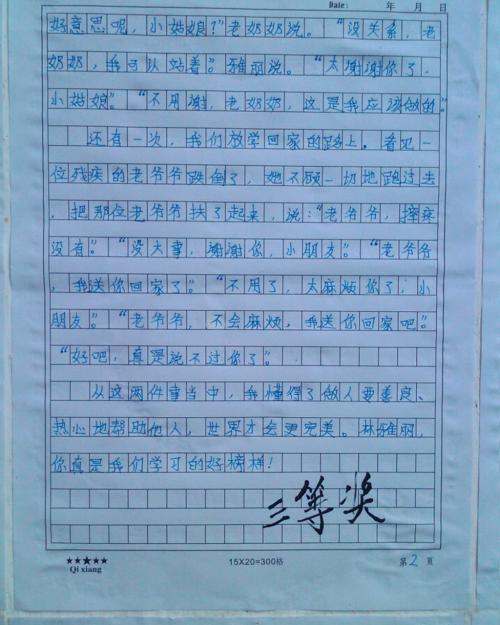 Date: 年 月 日
好意思呢，小姑娘？”老奶奶说。“没关系，老
奶奶，我可以站着”。雅丽说。“太谢谢你了，
小姑娘”。“不用谢，老奶奶，这是我应该做的”
还有一次，我们放学回家的路上。看见一
位残疾的老爷爷跌倒了，她不顾一切地跑过去
，把那位老爷爷扶了起来，说：“老爷爷，摔疼
没有”。“没大事，谢谢你，小朋友”。“老爷爷
，我送你回家了”。“不用了，太麻烦你了，小
朋友”。“老爷爷，不会麻烦，我送你回家吧”。
“好吧，真是说不过你了”。
从这两件事当中，我懂得了做人要善良、
热心地帮助他人，世界才会更完美。林雅丽，
你真是我们学习的好榜样！
三等奖
★★★★★
Qi xiang
15X20=300格
第2页